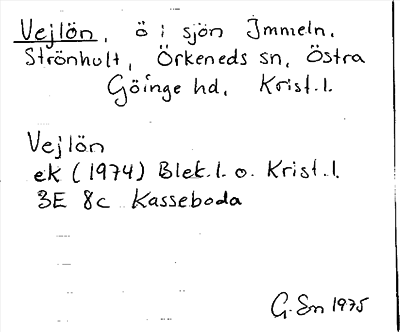 Vejlön, ö i sjön Immeln.
Strönhult, Örkeneds sn, Östra
Göinge hd, Krist.l.
Vejlön
ek (1974) Blek.l. o. Krist.l.
3E 8c Kasseboda
G. En 1975